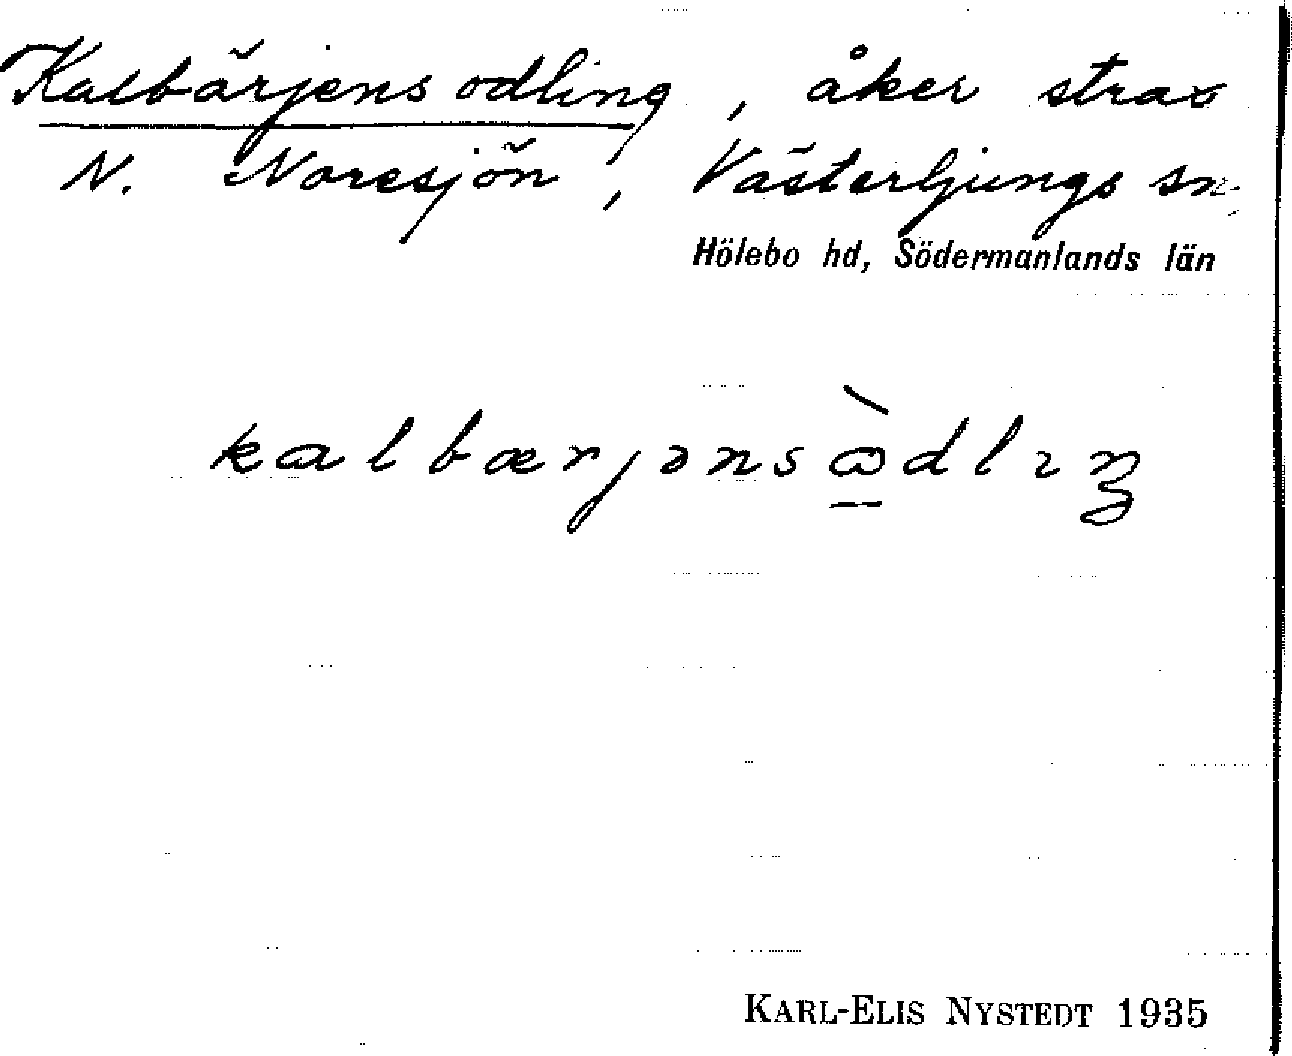 Kalbärjens odling, åker strax
N. Noresjön, Västerljungs sn,
Hölebo hd, Södermanlands län
kalbærjənsὼdlıŋ
KARL-ELIS NYSTEDT 1935